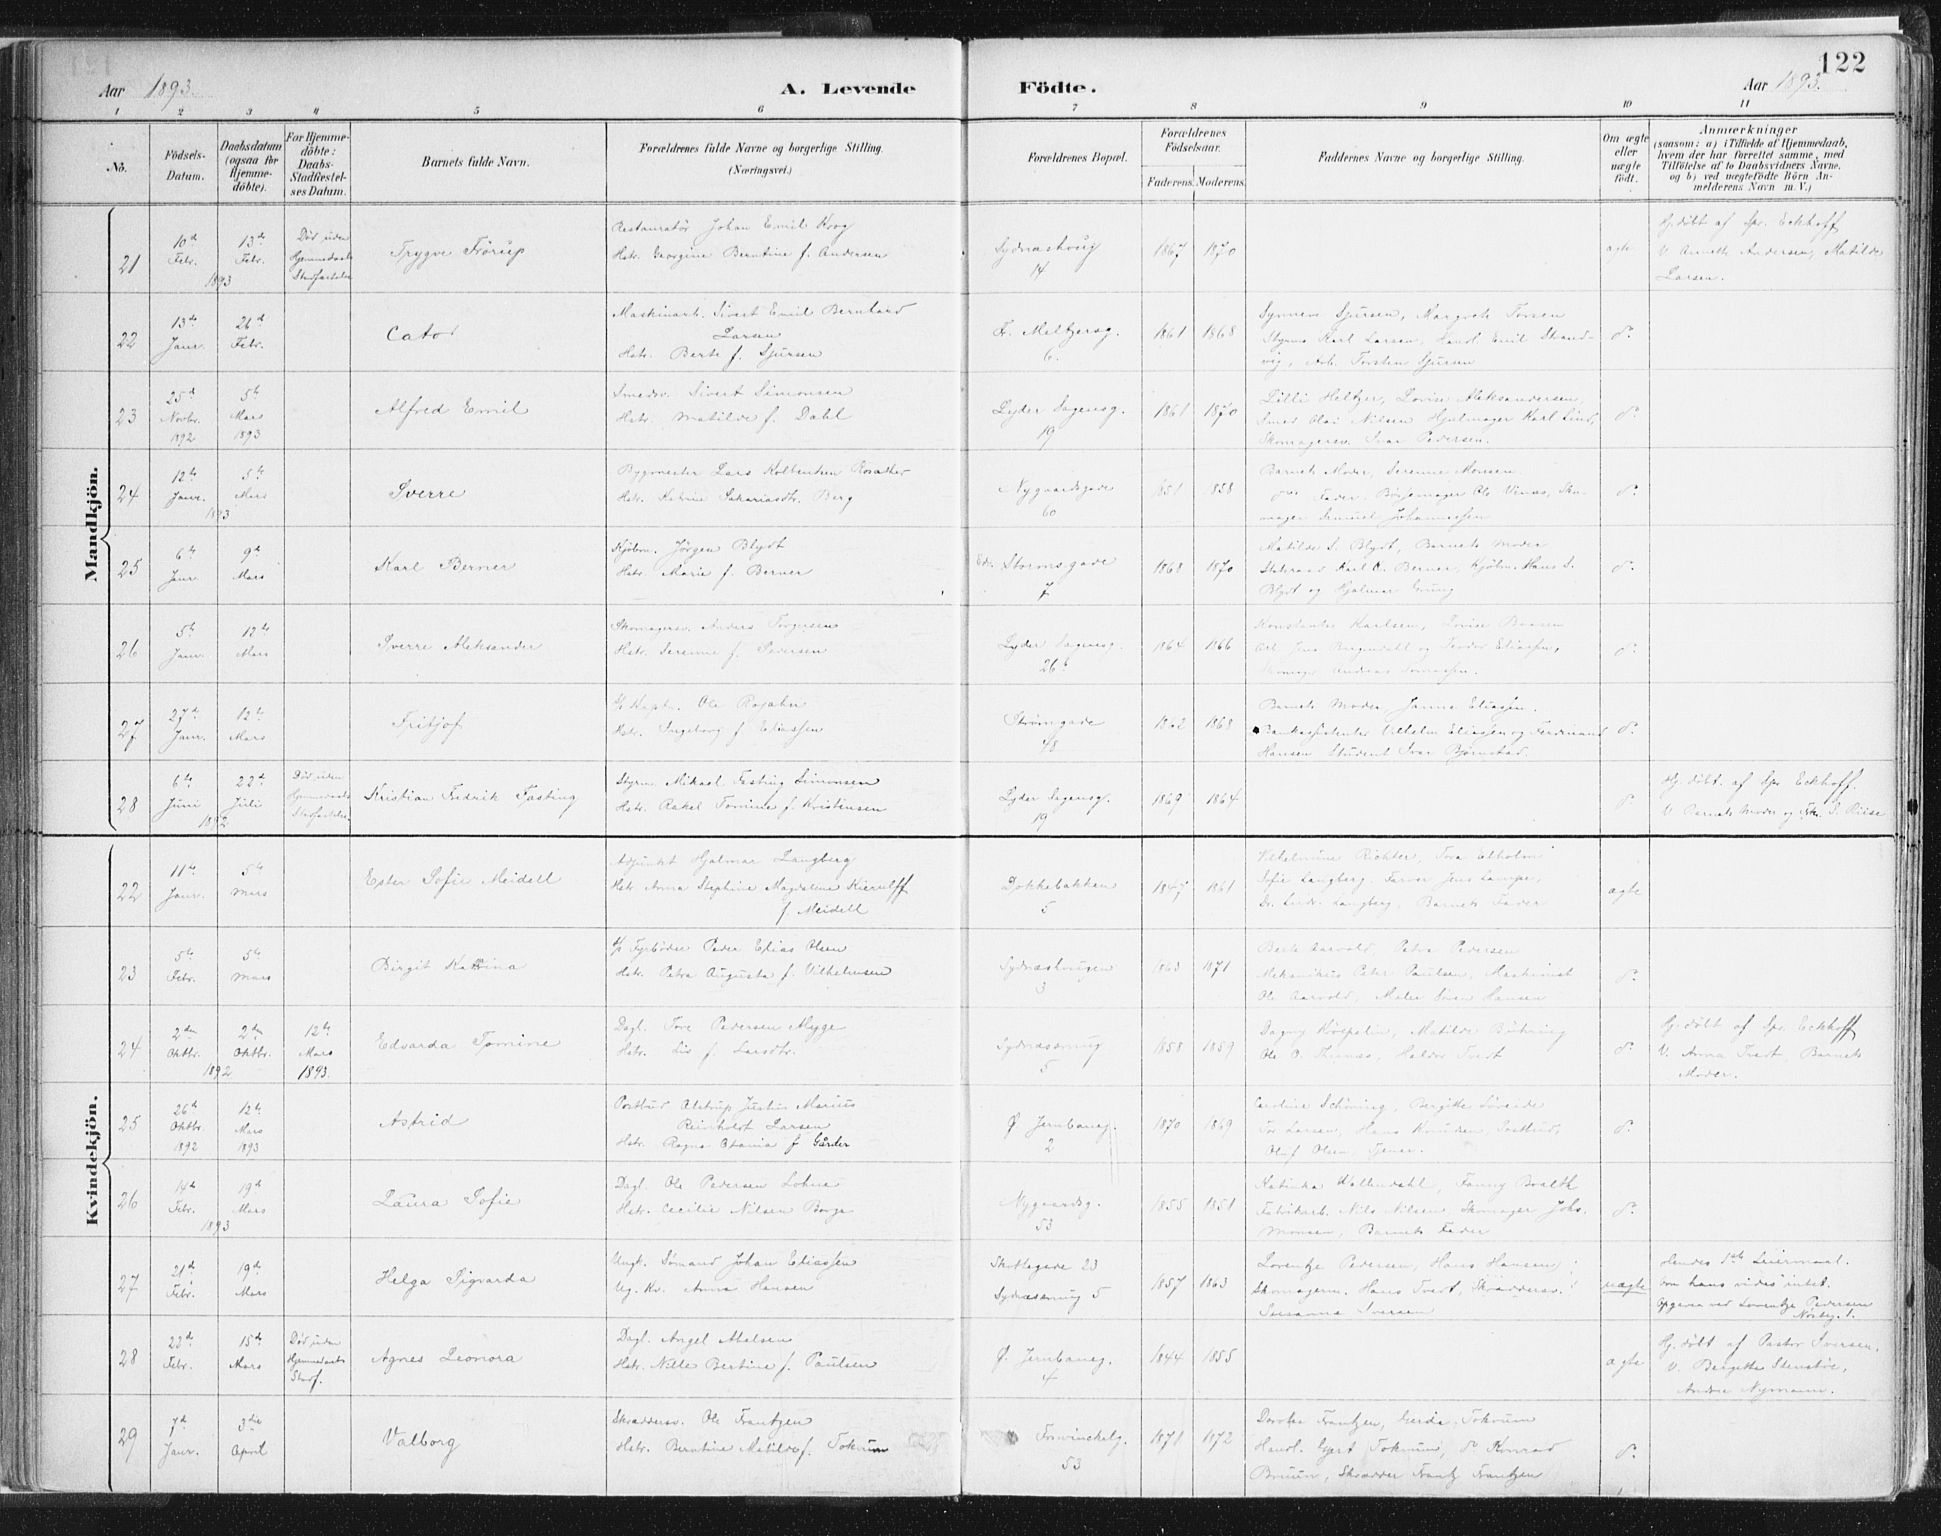 122
Aar 1893.
A. Levende
Födte.
Aar 1893.
1 2 3 4 5 6 7 8 9 10 11
No.
Födsels-
Datum.
Daabsdatum
(ogsaa for
Hjemme-
döbte).
For Hjemme-
döbte:
Daabs-
Stadfæstel-
ses Datum.
Barnets fulde Navn.
Forældrenes fulde Navne og borgerlige Stilling.
(Næringsvei.)
Forældrenes Bopæl.
Forældrenes
Födselsaar.
Faderens. Moderens.
Faddernes Navne og borgerlige Stilling.
Om ægte
eller
uægte
födt.
Anmærkninger
(saasom: a) i Tilfælde af Hjemmedaab,
hvem der har forrettet samme, med
Tilföielse af to Daabsvidners Navne,
og b) ved uægtefödte Börn An-
melderens Navn m. V.)
Mandkjön.
21
10d
Febr.
13de
Febr.
1893
Död uden
Hjemmedaabs
Stadfæstelse
Trygve Frörup
Restauratör Johan Emil Krog
Hstr. Georgine Berntine f. Andersen
Sydnæshaug
14
1867 1870
ægte
Hj. döbt af Spr. Eckhoff
V. Annette Andersen, Matilde
Larsen.
22
13de
Janr.
26d
Febr.
Cato
Maskinarb. Sivert Emil Bernhard
Larsen
Hstr. Berte f. Sjursen
Fr. Meltzersg.
6.
1861 1868
Synneve Sjursen, Margrete Torsen
Styrm. Karl Larsen, Handl. Emil Strand-
vig, Arb. Torsten Sjursen
do
23
25d
Novbr.
1892
5te
Mars
1893
Alfred Emil
Smedsv. Sivert Simonsen
Hstr. Matilde f. Dahl
Lyder Sagensg.
19
1861 1870
Lilli Heltzer, Lovise Aleksandersen,
Smed Olai Nilsen Hjulmager Karl Lind,
Skomagersv. Ivar Pedersen.
do
24
12te
Janr.
5te
Mars
1893
Sverre
Bygmester Lars Kolbentsen Rosather
Hstr. Katrine Sakariasdtr. Berg
Nygaardsgade
60
1851 1858
Barnets Moder, Serenne Monsen
Fader, Börsemager Ole Vinæs, Sko-
mager Samuel Johannessen
do
25
6te
Janr.
9de
Mars
Karl Berner
Kjöbm. Jörgen Blydt
Hstr. Marie f. Berner
Edv. Stormsgade
7
1868 1870
Matilde S. Blydt, Barnets Moder
Statsraad Karl C. Berner, Kjöbm. Hans S.
Blydt og Hjalmar Grung
do
26
5te
Janr.
12te
Mars
Sverre Aleksander
Skomagersv. Anders Torgersen
Hstr. Serenne f. Pedersen
Lyder Sagensg.
26b
1864 1866
Konstanse Karlsen, Lovise Boasen
Arb. Jens Bergendahl og Teodor Eliassen,
Skomager Andreas Tomassen.
do
27
27d
Janr.
12te
Mars
Fritjof
Sk. Kapt. Ole Rosather
Hstr. Ingeborg f. Eliassen
Strömgade
48
1862 1868
Barnets Moder, Janna Eliasen.
Bankassistenter Vilhelm Eliassen og Ferdinand
Hansen Student Ivar Björnstad.
do
28
6te
Juni
22d
Juli
1892
Död uden
Hjemmedaabs
Stadfæstelse.
Kristian Fredrik Fasting
Styrm. Mikael Fasting Simonsen
Hstr. Rakel Tomine f. Kristensen
Lyder Sagensg.
19
1869 1864
do
Hj. döbt af Spr. Eckhoff.
V. Barnets Moder og Frk. S. Riise
Kvindekjön.
22
11te
Janr.
5te
Mars
Ester Sofie Meidell
Adjunkt Hjalmar Langberg
Hstr. Anna Stephine Magdalena Kierulff
f. Meidell
Dokkebakken
5
1847 1861
Vilhelmine Richter, Tora Elholm
Sofie Langberg. Farver Jens Lampe,
Dr. Ludv. Langberg, Barnets Fader
ægte
23
5te
Febr.
5te
Mars
Birgit Katrina
Fyrböder Peder Elias Olsen
Hstr. Petra Augusta f. Vilhelmsen
Sydnæshaugen
3
1863 1871
Berte Aarvold, Petra Pedersen
Mekanikus Peter Paulsen, Maskinist
Ole Aarvold, Maler Sören Hansen
do
24
2den
Oktbr.
2den
Oktbr.
1892
12te
Mars
1893.
Edvarda Tomine
Dagl. Tore Pedersen Mygge
Hstr. Liv f. Larsdtr.
Sydnæssmug
5
1858 1859
Dagny Köepelin, Matilde Bühring
Ole O. Thunæs, Haldor Tvedt
do
Hj. döbt af Spr. Eckhoff
V. Anna Tvedt, Barnets
Moder.
25
26d
Oktbr
1892
12te
Mars
1893
Astrid
Postbud Alstrup Justin Marius
Reinholdt Larsen
Hstr. Ragna Otania f. Gårder
Ø. Jernbaneg.
2
1870 1869
Caroline Schöning, Bergitte Söreide
Tor Larsen, Hans Knudsen, Postbud,
Oluf Olsen, Tjener.
do
26
14de
Febr.
19de
Mars
1893
Laura Sofie
Dagl. Ole Pedersen Lohne
Hstr. Cecilie Nilsen Borge
Nygaardsg.
53
1855 1851
Katinka Wallendahl, Fanny Bralth
Fabrikarb. Nils Nilsen, Skomager Johs.
Monsen, Barnets Fader
do
27
21de
Febr.
19de
Mars
Helga Sigvarda
Ungk. Sömand Johan Eliassen
Ug. Kv. Anna Hansen
Skottegade 23
Sydnæssmug 5
1857 1863
Lorentze Pedersen, Hans Hansen,
Skomagerm. Hans Tvedt, Skræddersv.
Susanna Iversen
uægte
Hendes 1ste Leiermaal.
om hans vides intet.
Opgaven ved Lorentze Pedersen
28
22de
Febr.
15de
Mars
Död uden
Hjemmedaabs
Stadf.
Agnes Leonora
Dagl. Angel Abelsen
Hstr. Nille Bertine f. Paulsen
Ø. Jernbaneg.
4
1844 1855
ægte
Hj. döbt af Pastor Iversen.
V. Bergitte Stenstöe,
Andrea Nymann.
29
7d
Janr.
3die
April
Valborg
Skræddersv. Ole Frantzen
Hstr. Berntine Matilde f. Tokrum
Forvinckelg.
53
1871 1872
Dorotea Frantzen, Gerda Tokrum
Handl. Gjert Tokrum, do Konrad
Bruun, Skrædder Frantz Frantzen
do